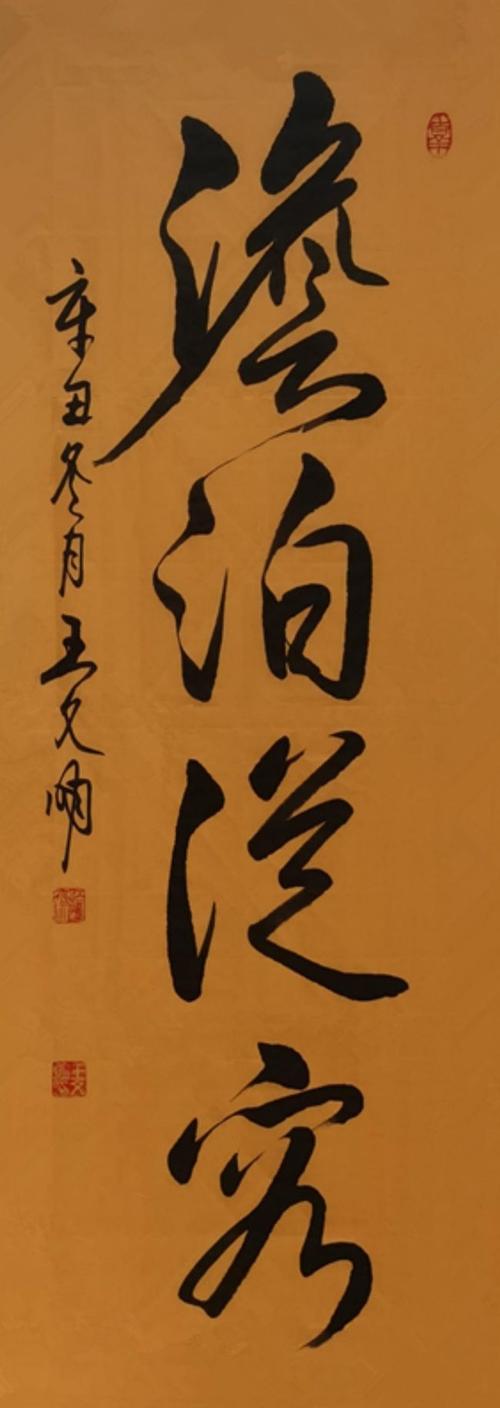 澹泊從容
辛丑冬月王文明